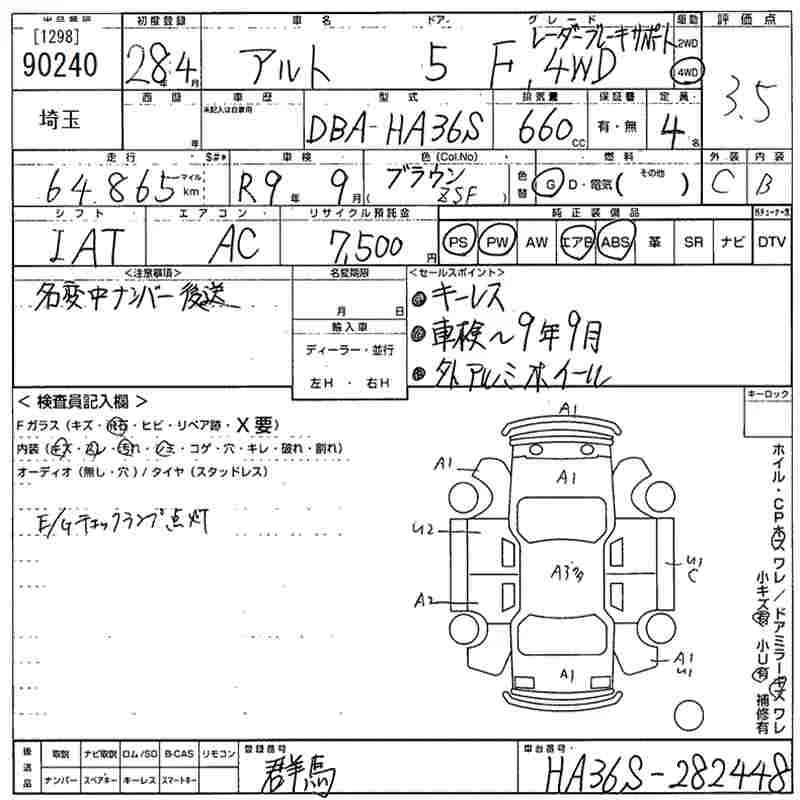 [1298]
90240
初度登録
28年4月
車名
アルト
ドア
5
グレード
レーダーブレーキサポート
F, 4WD
駆動
2WD
4WD
評価点
3.5
埼玉
西暦
年
車歴
未記入は自家用
型式
DBA-HA36S
排気量
660cc
保証書
有・無
定員
4名
走行
64.865
マイル
km
S#*
車検
R9年9月
色(Col.No)
ブラウン
(ZSF)
色替
燃料
G D・電気( その他 )
外装
C
内装
B
シフト
IAT
エアコン
AC
リサイクル預託金
7,500円
純正装備品
PS PW AW エアB ABS 革 SR ナビ DTV
<注意事項>
名変中ナンバー後送
名変期限
月 日
輸入車
ディーラー・並行
左H ・ 右H
<セールスポイント>
●キーレス
●車検～9年9月
●外アルミホイール
<検査員記入欄>
Fガラス(キズ・飛石・ヒビ・リペア跡・X要)
内装(キズ・スレ・汚れ・シミ・コゲ・穴・キレ・破れ・割れ)
オーディオ(無し・穴)/タイヤ(スタッドレス)
E/Gチェックランプ点灯
キーロック
A1
A1
A1
U2
A3タ
U1
C
A2
A1
A1
U1
ホイル・CPキズ ワレ/ドアミラーキズ ワレ
小キズ有 小U有 補修有
後送品
取説 ナビ取説 ロム/SD B-CAS リモコン
ナンバー スペアキー キーレス スマートキー
登録番号
群馬
車台番号
HA36S-282448